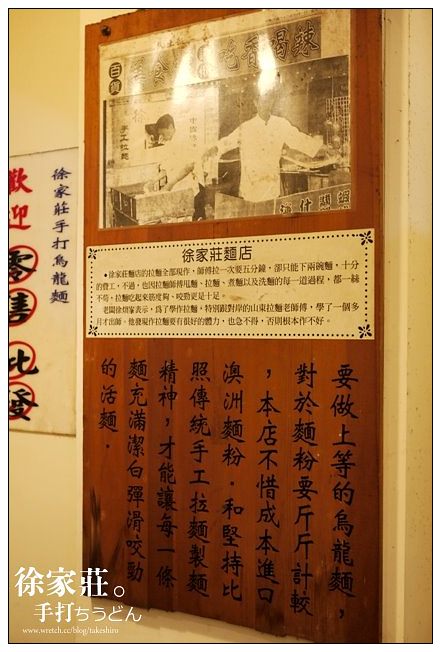 百貨
美食 吃香喝辣
手工拉麵
徐家莊麵店
●徐家莊麵店的拉麵全部現作，師傅拉一次要五分鐘，卻只能下兩碗麵，十分
的費工，不過，也因拉麵師傅甩麵、拉麵、煮麵以及洗麵的每一道過程，都一絲
不苟，拉麵吃起來筋度夠、咬勁更是十足。
老闆徐煩家表示，爲了學作拉麵，特別跟對岸的山東拉麵老師傅，學了一個多
月才出師。他發現作拉麵要有很好的體力，也急不得，否則根本作不好。
要做上等的烏龍麵，
對於麵粉要斤斤計較
，本店不惜成本進口
澳洲麵粉．和堅持比
照傳統手工拉麵製麵
精神，才能讓每一條
麵充滿潔白彈滑咬勁
的活麵．
徐家莊手打烏龍麵
歡迎零售批發
徐家莊。
手打ちうどん
www.wretch.cc/blog/takeshiro